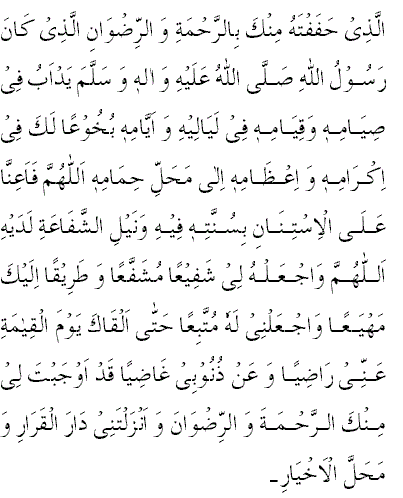 الَّذِیْ حَفَفْتَهُ مِنْكَ بِالرَّحْمَةِ وَ الرِّضْوَانِ الَّذِیْ كَانَ
رَسُوْلُ اللهِ صَلَّی اللهُ عَلَیْهِ وَ اٰلِهٖ وَ سَلَّمَ یَدْاَبُ فِیْ
صِیَامِهٖ وَقِیَامِهٖ فِیْ لَیَالِیْهِ وَ اَیَّامِهٖ بُخُوْعًا لَكَ فِیْ
اِكْرَامِهٖ وَ اِعْظَامِهٖ اِلٰی مَحَلِّ حِمَامِهٖ اَللّٰهُمَّ فَاَعِنَّا
عَلَی الْاِسْتِنَانِ بِسُنَّتِهٖ فِیْهِ وَنَیْلِ الشَّفَاعَةِ لَدَیْهِ
اَللّٰهُمَّ وَاجْعَلْهُ لِیْ شَفِیْعًا مُشَفَّعًا وَ طَرِیْقًا اِلَیْكَ
مَهْیَعًا وَاجْعَلْنِیْ لَهٗ مُتَّبِعًا حَتّٰی اَلْقَاكَ یَوْمَ الْقِیٰمَةِ
عَنِّیْ رَاضِیًا وَ عَنْ ذُنُوْبِیْ غَاضِیًا قَدْ اَوْجَبْتَ لِیْ
مِنْكَ الرَّحْمَةَ وَ الرِّضْوَانَ وَ اَنْزَلْتَنِیْ دَارَ الْقَرَارِ وَ
مَحَلَّ الْاَخْیَارِ۔